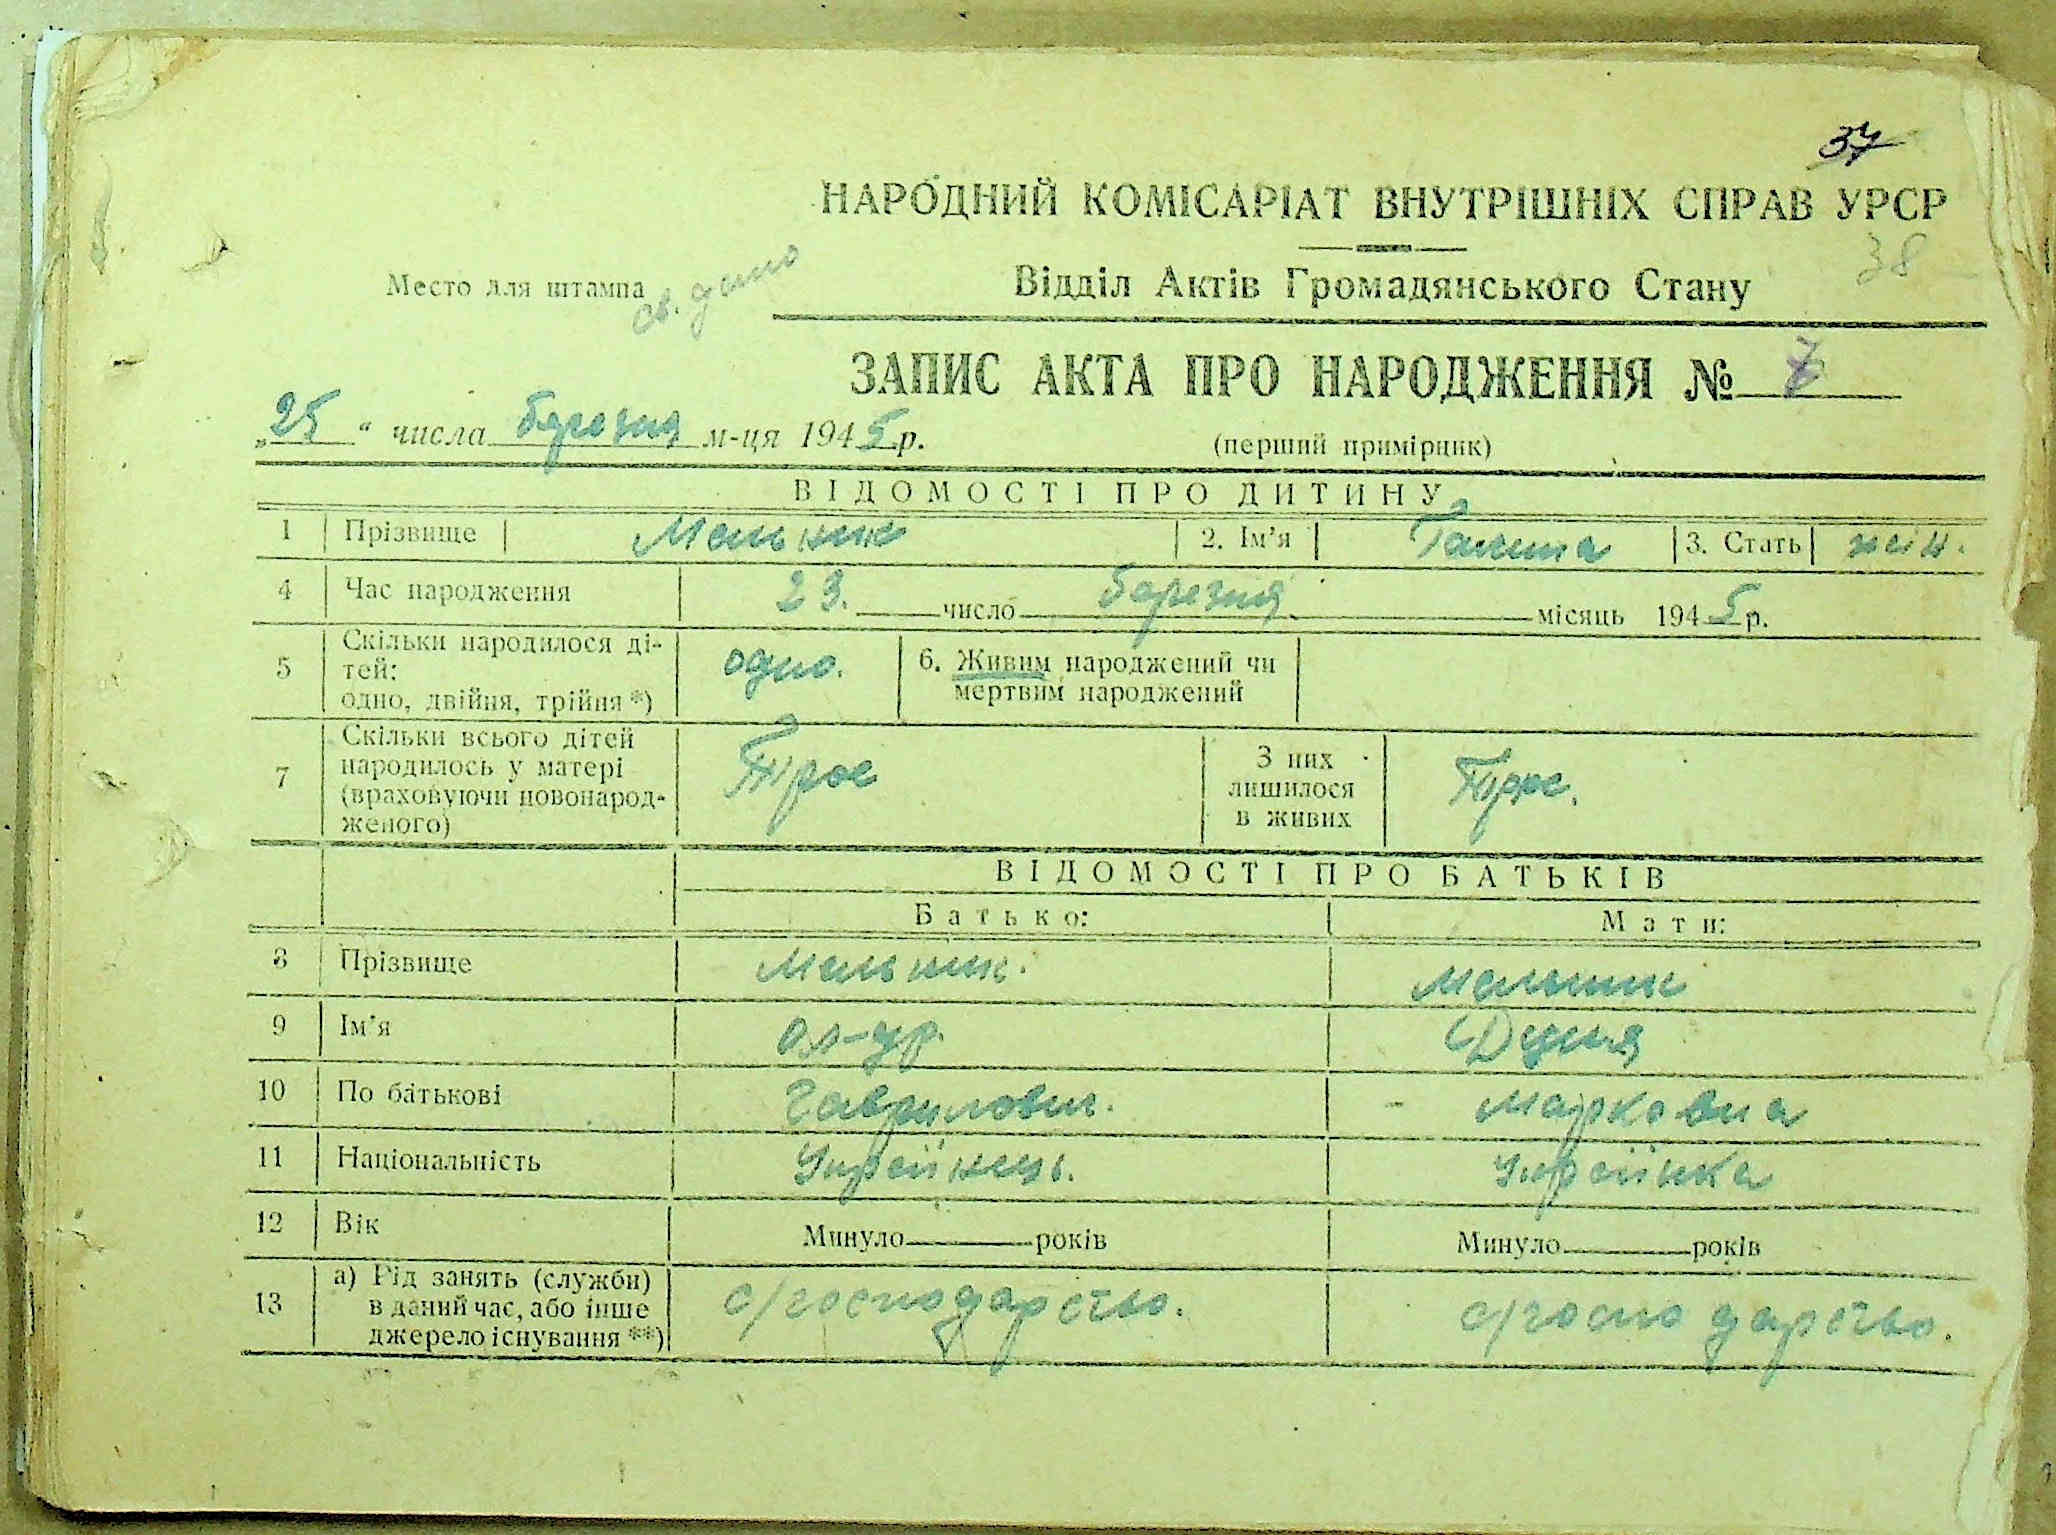 37
НАРОДНИЙ КОМІСАРІАТ ВНУТРІШНІХ СПРАВ УРСР
38
Место для штампа
св. дано
Відділ Актів Громадянського Стану
ЗАПИС АКТА ПРО НАРОДЖЕННЯ № 7
„25“ числа березня м-ця 1945 р.
(перший примірник)
ВІДОМОСТІ ПРО ДИТИНУ
1 Прізвище Мельник 2. Ім'я Галина 3. Стать жін.
4 Час народження 23. число березня місяць 1945 р.
5 Скільки народилося ді-
тей:
одно, двійня, трійня *)
одно.
6. Живим народжений чи
мертвим народжений
7 Скільки всього дітей
народилось у матері
(враховуючи новонарод-
женого)
Троє
З них
лишилося
в живих
Троє.
ВІДОМОСТІ ПРО БАТЬКІВ
Батько: Мати:
8 Прізвище Мельник. Мельник
9 Ім'я Ол-др.
10 По батькові Гаврилович. Марковна
11 Національність Українець. Українка
12 Вік Минуло років Минуло років
13 а) Рід занять (служби)
в даний час, або інше
джерело існування **)
с/господарство. с/господарство.